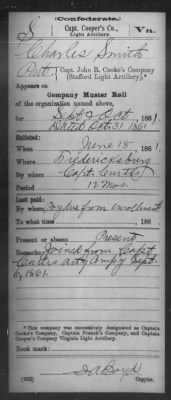 (Confederate.)
S Capt. Cooper's Co., Vn.
Light Artillery.
Charles Smith
Pvt., Capt. John R. Cooke's Company
(Stafford Light Artillery).*
Appears on
Company Muster Roll
of the organization named above,
for Sept & Oct, 1861.
Dated Oct. 31 1861
Enlisted:
When June 18, 1861.
Where Fredericksburg
By whom Capt. Curtis
Period 12 mos.
Last paid:
By whom To, due from enrollment
To what time , 186 .
Present or absent Present
Remarks: Joined from Capt
Curtis Arty Compy Sept
6, 1861.
*This company was successively designated as Captain
Cooke's Company, Captain French's Company, and Captain
Cooper's Company Virginia Light Artillery.
Book mark:
(642) S A Boyd
Copyist.